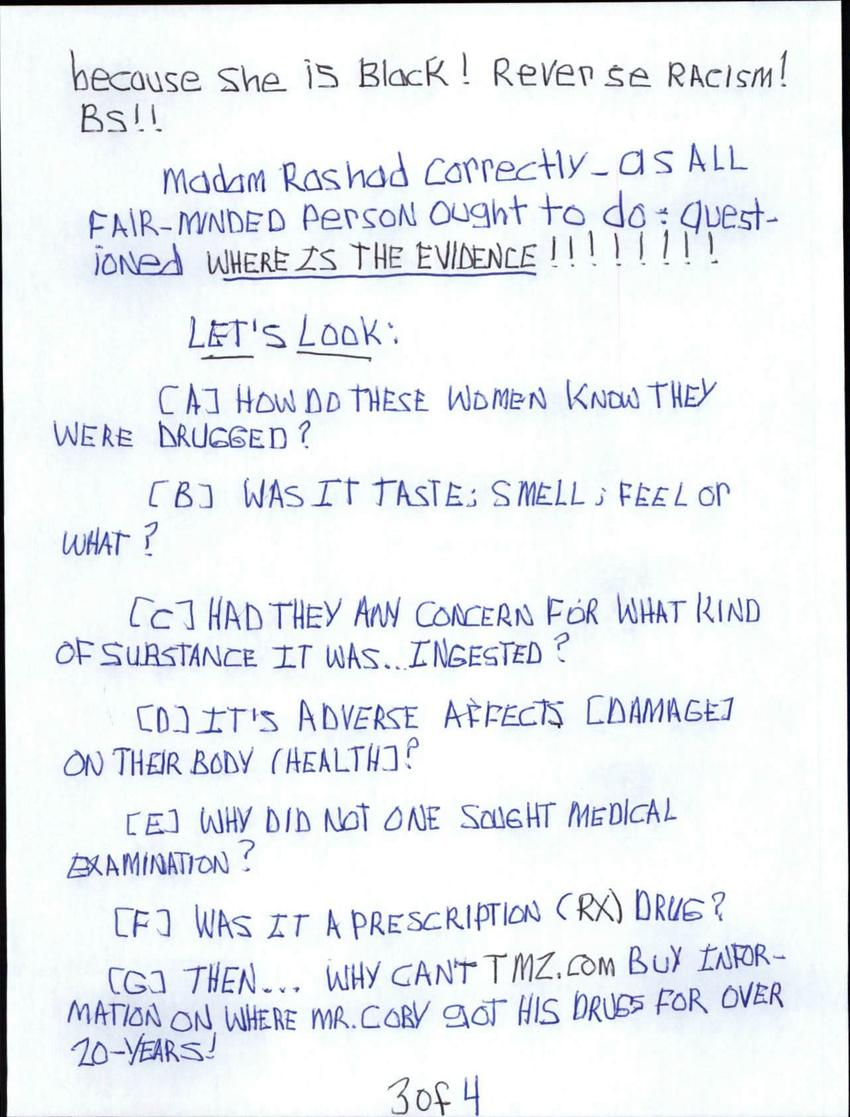 because She is Black! Reverse RACISM!
BS!!
Madam Rashad Correctly - as ALL
FAIR-MINDED Person ought to do: quest-
ioned WHERE IS THE EVIDENCE!!!!!!!!
LET'S LOOK:
[A] HOW DO THESE WOMEN KNOW THEY
WERE DRUGGED?
[B] WAS IT TASTE; SMELL; FEEL or
WHAT?
[C] HAD THEY ANY CONCERN FOR WHAT KIND
OF SUBSTANCE IT WAS.. INGESTED?
[D] IT'S ADVERSE AFFECTS [DAMAGE]
ON THEIR BODY (HEALTH]?
[E] WHY DID NOT ONE SOUGHT MEDICAL
EXAMINATION?
[F] WAS IT A PRESCRIPTION (RX) DRUG?
[G] THEN... WHY CAN'T TMZ.COM BUY INFOR-
MATION ON WHERE MR. COBY GOT HIS DRUGS FOR OVER
20-YEARS!
3 of 4